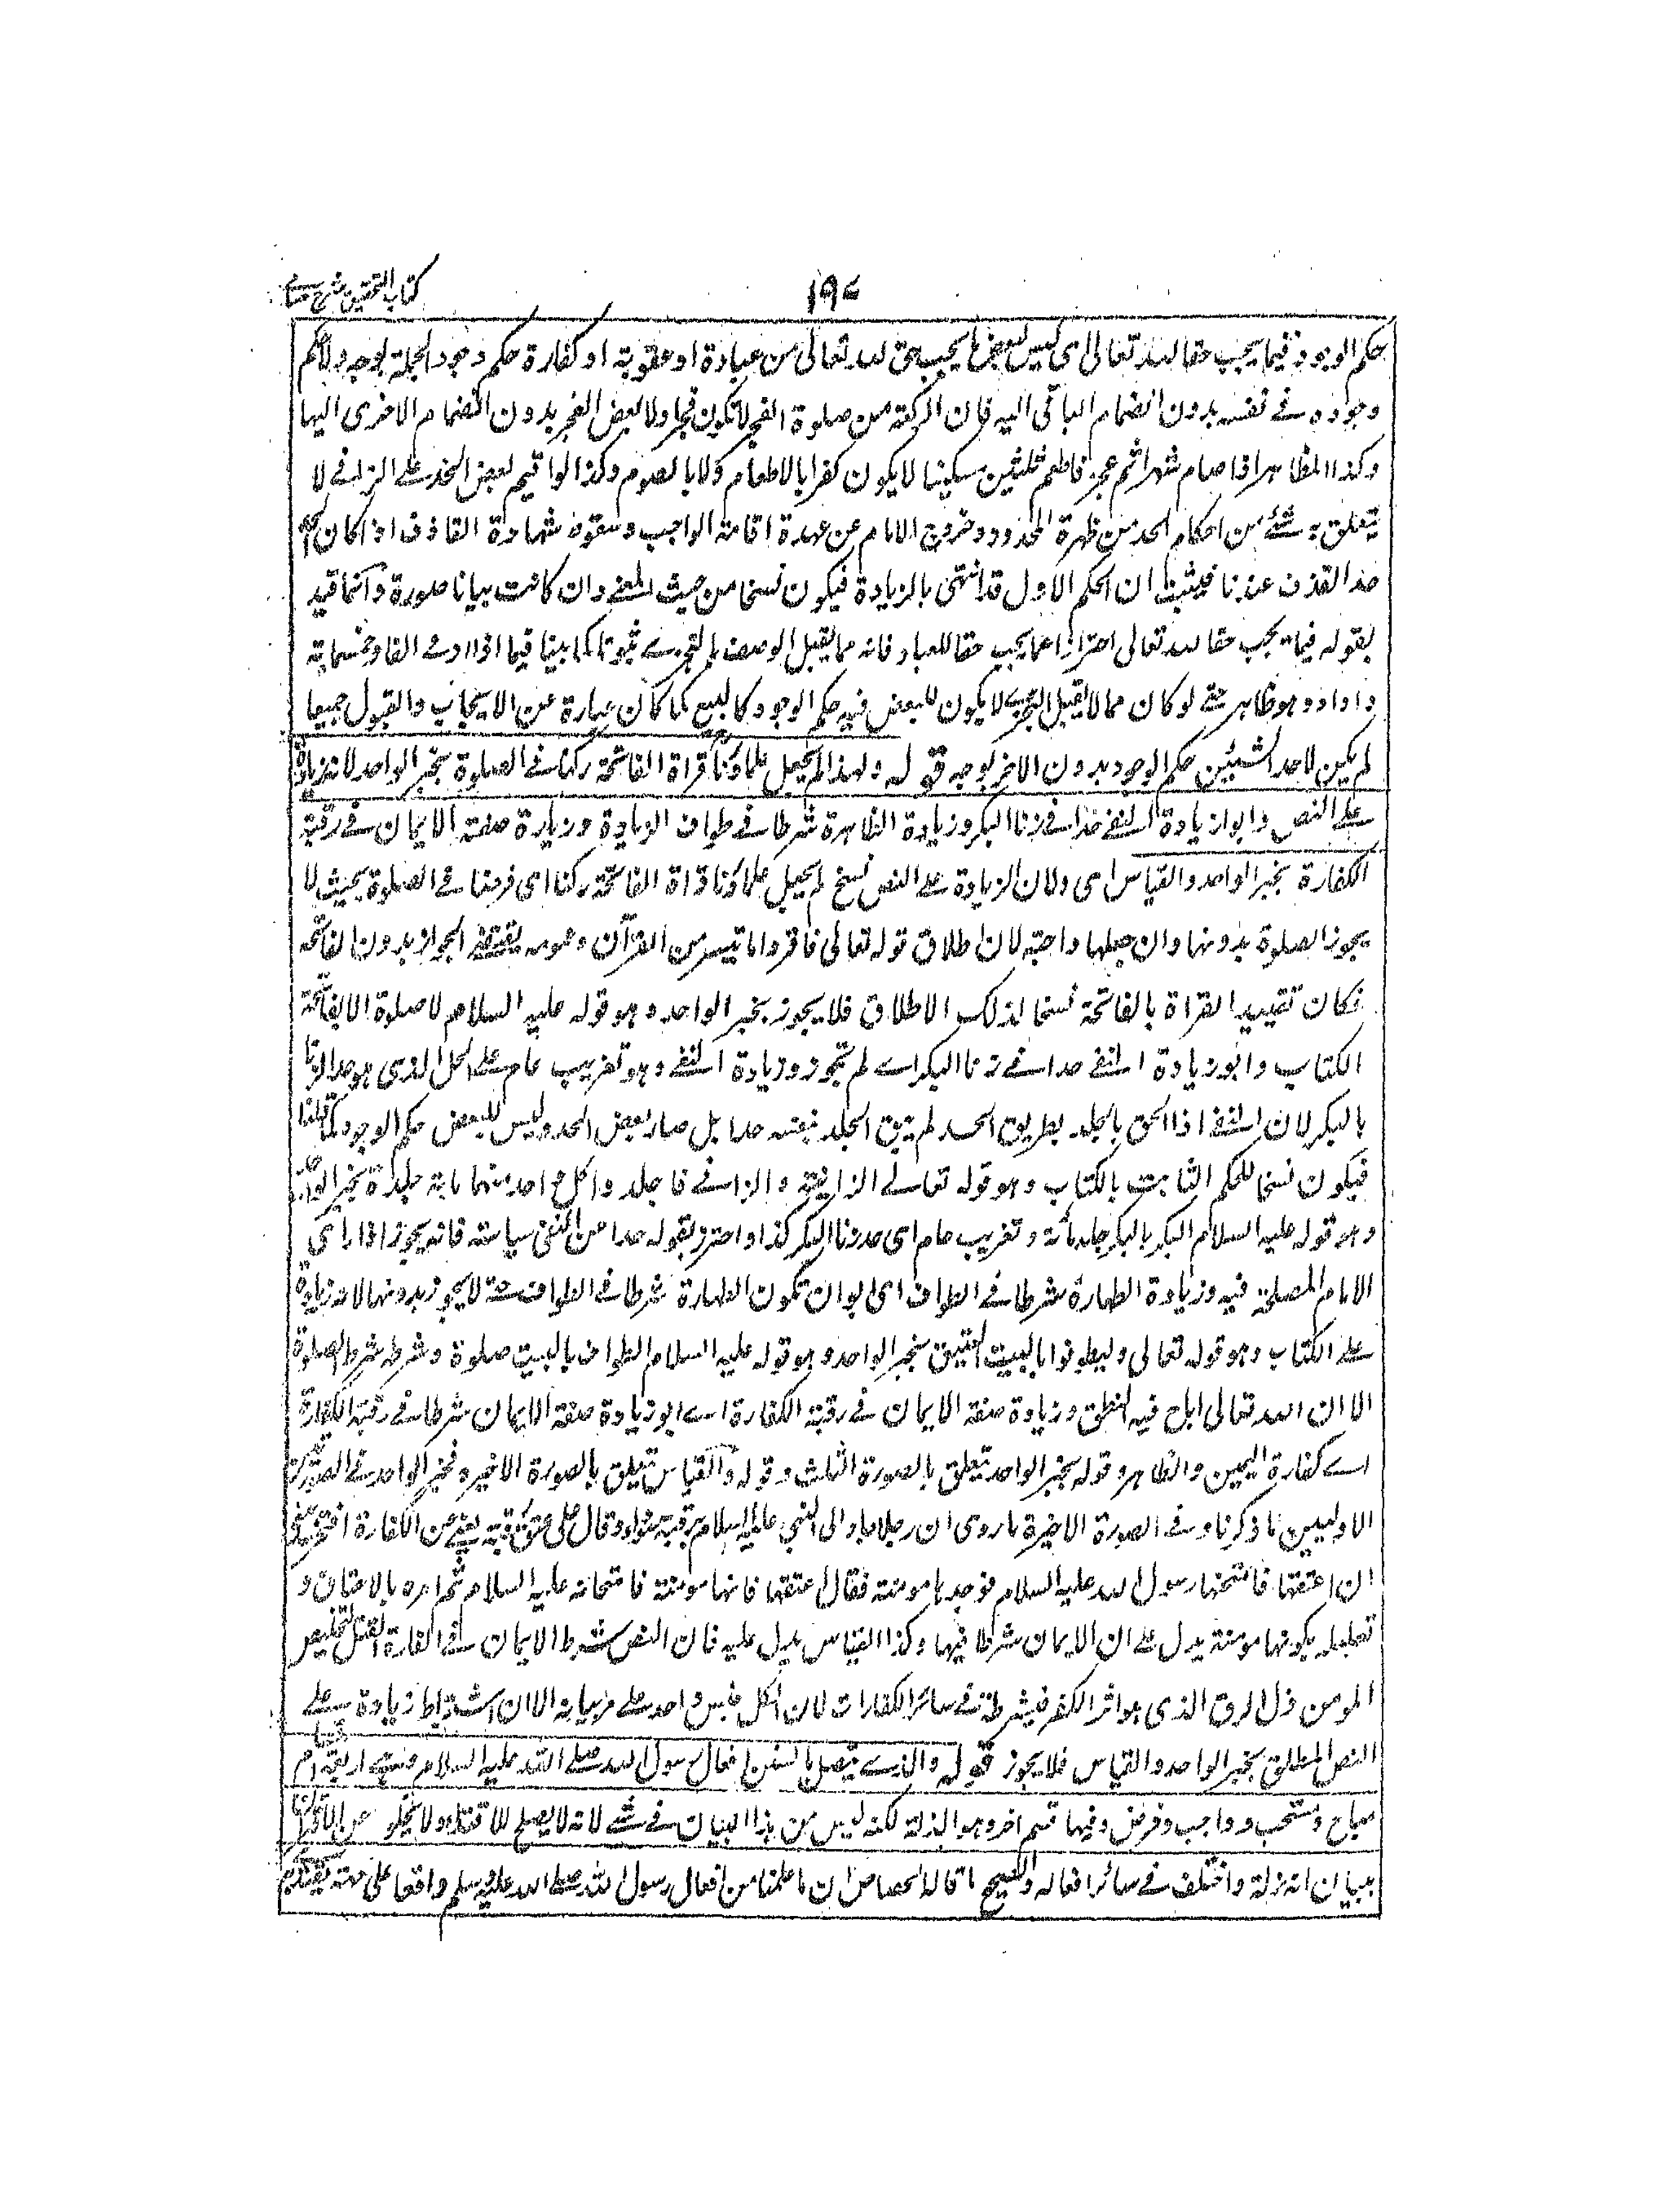 كتاب التحقيق شرح حسامي
١٩٧
حكم الوجود فيما يجب حقا لله تعالى اى ليس لبعض ما يجب حق لله تعالى من عبادة او عقوبة او كفارة حكم وجود الجملة بوجه ولا حكم
وجوده في نفسه بدون انضمام الباقى اليه فان الركعة من صلوة الفجر لا تكون فجرا ولا بعض الفجر بدون انضمام الاخرى اليها
وكذا المظاهر اذا صام شهرا ثم عجز فاطعم ثلثين مسكينا لا يكون كفرا بالاطعام ولا بالصوم وكذا لو اقيم بعض الحد على الزانى لا
يتعلق به شئ من احكام الحد من طهرة المحدود وخروج الامام عن عهدة اقامة الواجب وسقوط شهادة القاذف اذا كان
حد القذف عندنا فيثبت ان الحكم الاول قد انتهى بالزيادة فيكون نسخا من حيث المعنى وان كانت بيانا صورة وانما قيد
بقوله فيما يجب حقا لله تعالى احترازا عما يجب حقا للعباد فانه مما يقبل الوصف بالتجزى ثبوتا كما بينا فيما اذا ادعى الفا وخمسمائة
واداد وهو ظاهر حتى لو كان مما لا يقبل التجزى لا يكون للبعض فيه حكم الوجود كالبيع لما كان عبارة عن الايجاب والقبول جميعا
لم يكن لاحد الشيئين حكم الوجود بدون الاخر بوجه قوله ولهذا لم يجعل علماؤنا قراة الفاتحة ركنا في الصلوة بخبر الواحد لانه زيادة
على النص وابوا زيادة النفى حدا في زنا البكر وزيادة الطهارة شرطا في طواف الزيارة وزيادة صفة الايمان في رقبة
الكفارة بخبر الواحد والقياس اى ولان الزيادة على النص نسخ لم يجعل علماؤنا قراة الفاتحة ركنا اى فرضا في الصلوة بحيث لا
يجوز الصلوة بدونها وان جعلها واجبة لان اطلاق قوله تعالى فاقرءوا ما تيسر من القرآن وعمومه يقتضى الجواز بدون الفاتحة
فكان تقييد القراة بالفاتحة نسخا لذلك الاطلاق فلا يجوز بخبر الواحد وهو قوله عليه السلام لا صلوة الا بفاتحة
الكتاب وابو زيادة النفى حدا في زنا البكر اى لم تجوز وزيادة النفى وهو تغريب عام على الجلد الذى هو حد الزنا
بالبكر لان النفى اذا الحق بالجلد بطريق الحد لم يبق الجلد بنفسه حدا بل صار بعض الحد وليس للبعض حكم الوجود كما قلنا
فيكون نسخا للحكم الثابت بالكتاب وهو قوله تعالى الزانية والزانى فاجلدوا كل واحد منهما مائة جلدة بخبر الواحد
وهو قوله عليه السلام البكر بالبكر جلد مائة وتغريب عام اى حد زنا البكر كذا واحترز بقوله حدا عن النفى سياسة فانه يجوز اذا راى
الامام المصلحة فيه وزيادة الطهارة شرطا في الطواف اى ابوا ان تكون الطهارة شرطا في الطواف حتى لا يجوز بدونها لانه زيادة
على الكتاب وهو قوله تعالى وليطوفوا بالبيت العتيق بخبر الواحد وهو قوله عليه السلام الطواف بالبيت صلوة وشرطه شرط الصلوة
الا ان الله تعالى اباح فيه المنطق وزيادة صفة الايمان في رقبة الكفارة اى ابو زيادة صفة الايمان شرطا في رقبة الكفارة
اى كفارة اليمين والظاهر وقوله بخبر الواحد يتعلق بالصورة الثلث وقوله والقياس يتعلق بالصورة الاخيرة فخبر الواحد في الصورتين
الاوليين ما ذكرنا وفي الصورة الاخيرة ما روى ان رجلا جاء الى النبى عليه السلام برقبة سوداء وقال على عتق رقبة يعنى عن الكفارة افتجزينى
ان اعتقتها فامتحنها رسول الله عليه السلام فوجدها مومنة فقال اعتقها فانها مومنة فامتحانه عليه السلام ثم امره بالاعتاق و
تعليله بكونها مومنة يدل على ان الايمان شرطا فيها وكذا القياس يدل عليه فان النص شرط الايمان في كفارة القتل لتخليص
المومن ذل الرق الذى هو اثر الكفر فيشرطه في سائر الكفارات لان الكل جنس واحد على مر بيانه الا ان اشتراط زيادة على
النص المطلق بخبر الواحد والقياس فلا يجوز قوله والذى يتصل بالسنن افعال رسول الله صلى الله عليه السلام وهى اربعة اقسام
مباح ومستحب وواجب وفرض وفيها قسم اخر وهو الزلة لكنه ليس من هذا البيان في شئ لانه لا يصلح للاقتداء ولا يخلو عن الاقتران
ببيان انه زلة واختلف في سائر افعاله والصحيح ما قاله الجصاص ان ما علمنا من افعال رسول الله صلى الله عليه وسلم واقعا على جهة يقتدى به